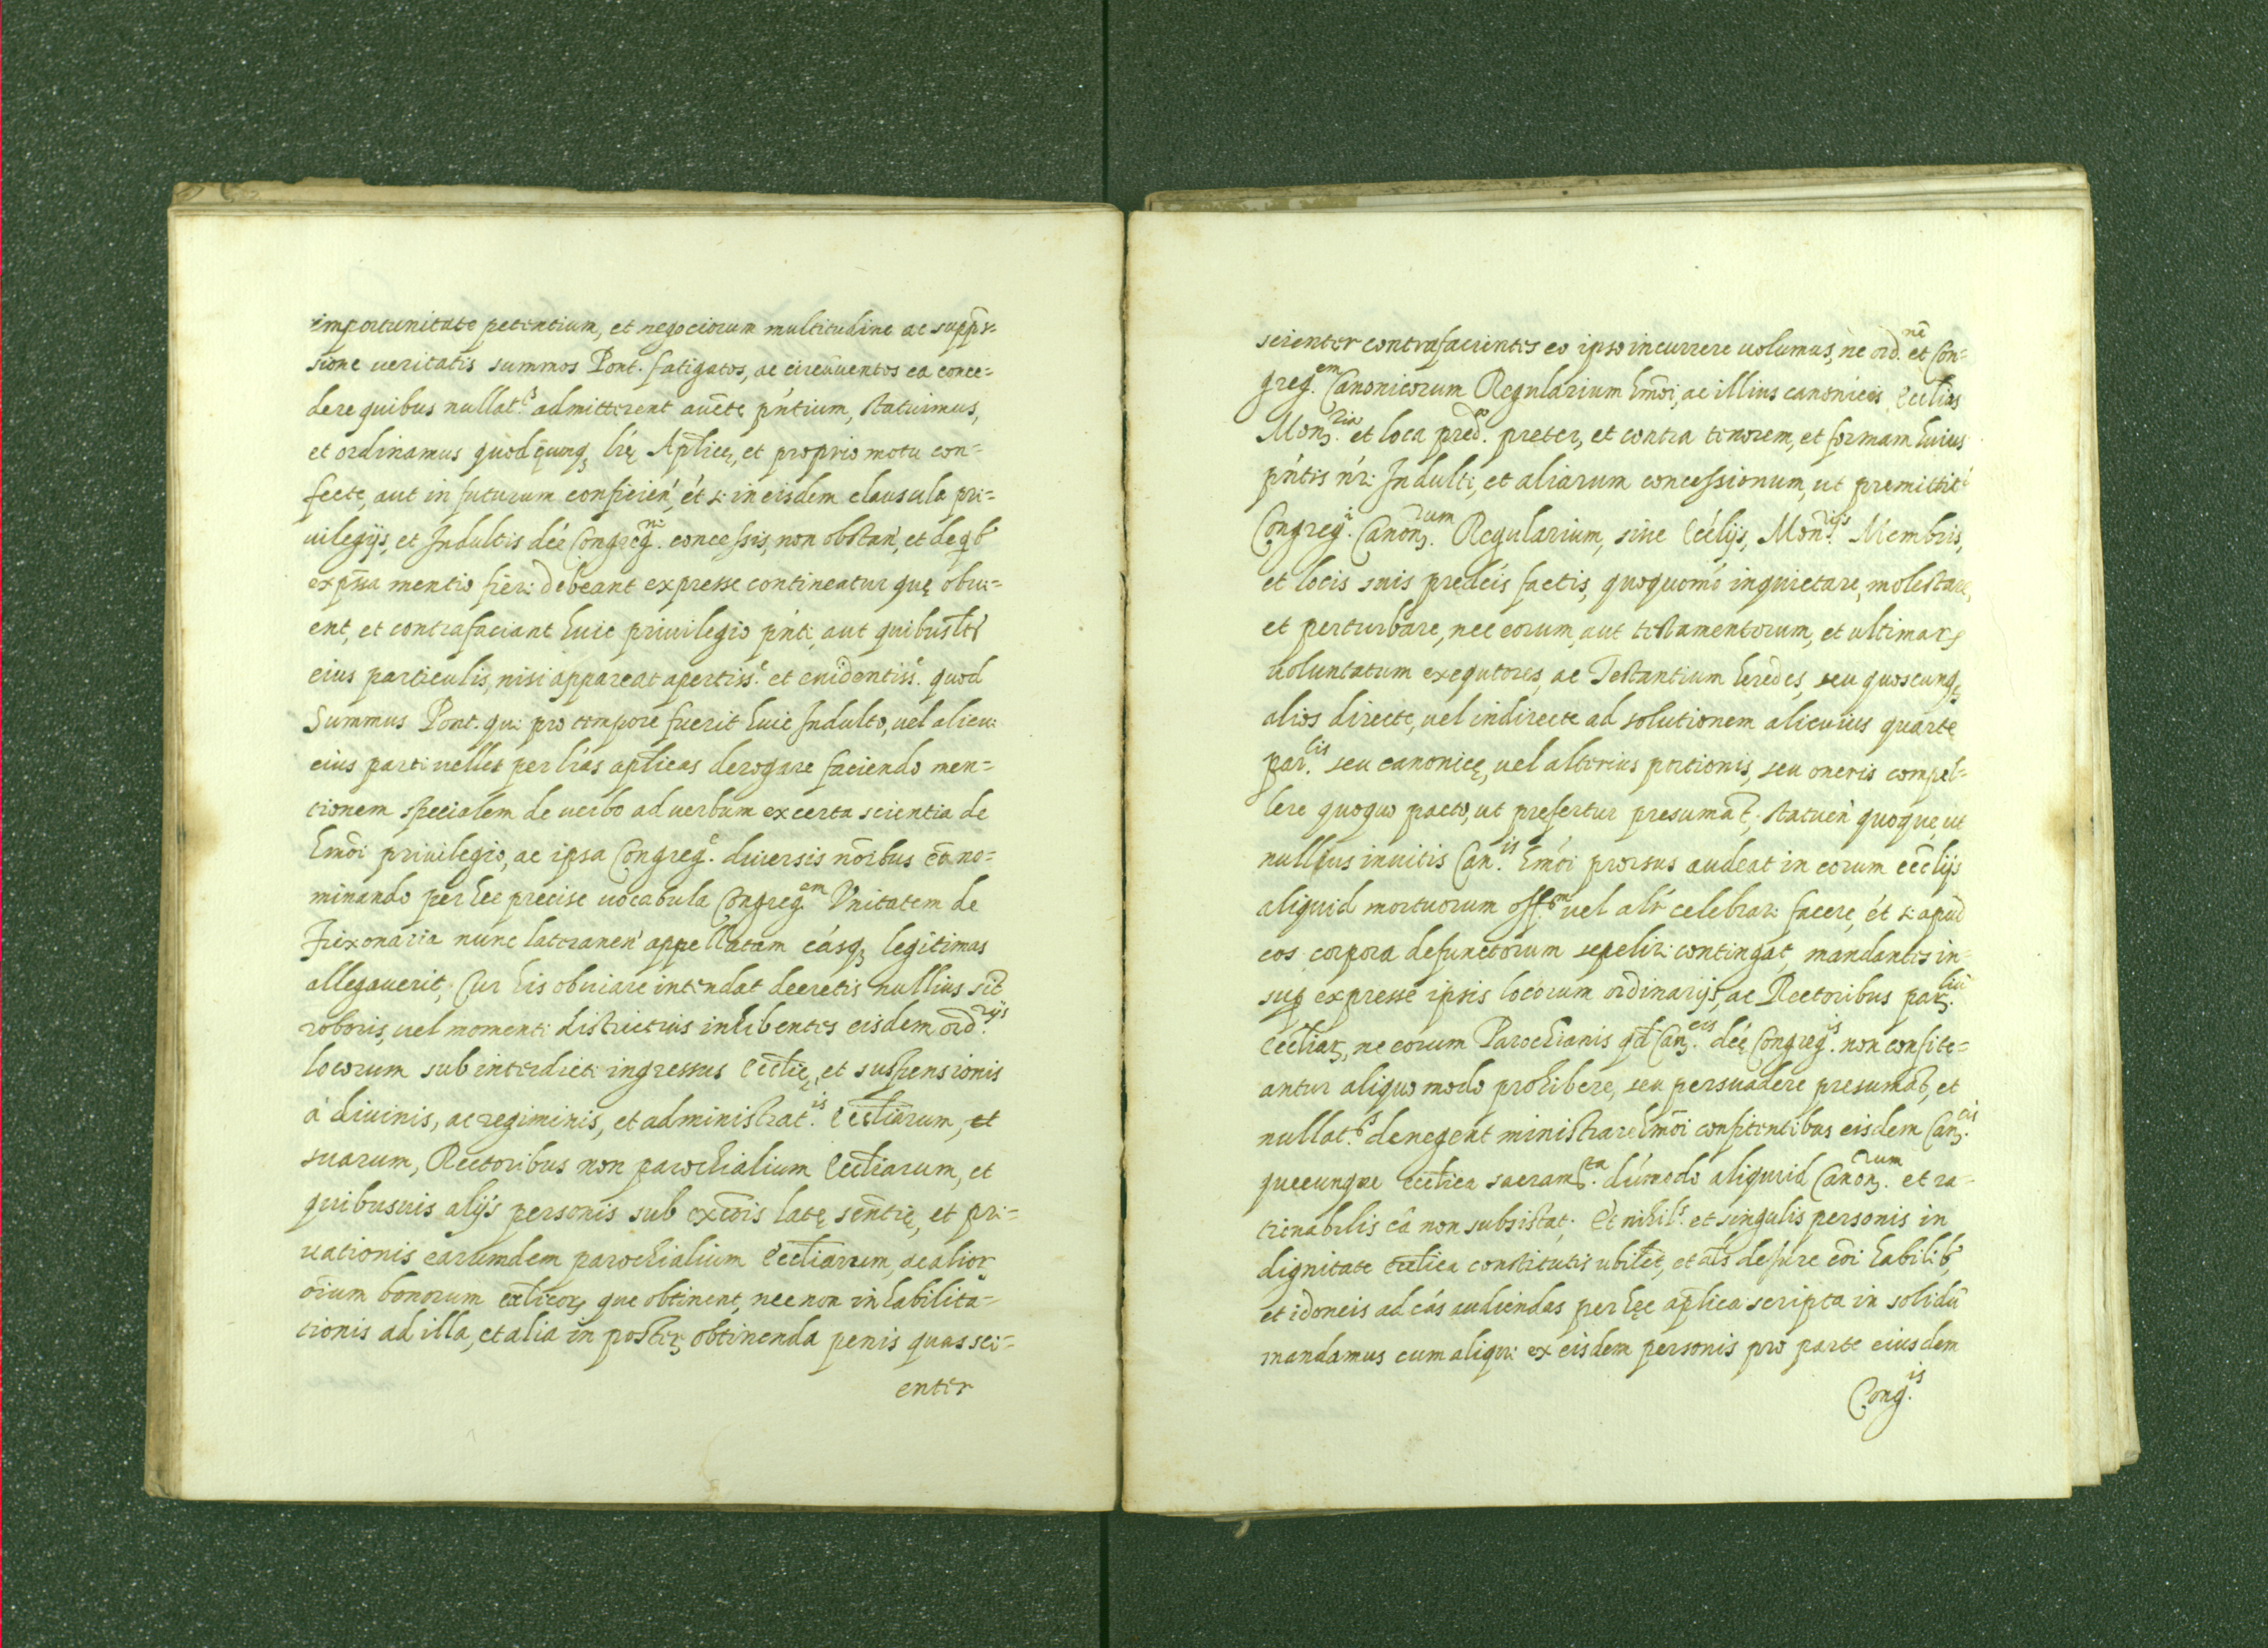 importunitate petentium, et negociorum multitudine ac supp̄s=
sione veritatis summos Pont. fatigatos, ac circūuentos ea conce=
dere quibus nullat.s admitterent auc̄te pńtium, statuimus,
et ordinamus quod q̄cunq; lr̄ę Apl̄icę, et proprio motu con=
fecte, aut in futurum conficień, ét si in eisdem clausula pri=
uilegijs, et Indultis déę Congreg.ni concessis, non obstań, et de qb'
exp̄ssa mentio fieri debeant expresse contineatur quę obui=
ent, et contrafaciant huic priuilegio pńti, aut quibuslt'
eius particulis, nisi appareat apertiss.e et euidentiss.e quod
Summus Pont. qui pro tempore fuerit huic Indulto, uel alicui
eius parti uellet per lŕas apl̄icas derogare faciendo men=
tionem specialem de uerbo ad uerbum ex certa scientia de
hm̄oi priuilegio, ac ipsa Congreg.e diuersis nōibus eā no=
minando per hec precise uocabula Congreg.em Vnitatem de
Frixonaria nunc lateraneń appellatam cásq; legitimas
allegauerit, Cur his obuiare intendat decretis nullius sit
roboris, uel momenti districtius inhibentes eisdem ord.rijs
locorum sub interdicti ingressus Eccl̄ię, et suspensionis
à diuinis, ac regiminis, et administrat.is Eccl̄iarum, et
suarum, Rectoribus non parochialium Eccl̄iarum, et
quibusuis alijs personis sub excōis latę sen̄tię, et pri=
uationis earumdem parochialium Eccl̄iarum, ac alior
ōium bonorum eccl̄icor; que obtinent, nec non inhabilita=
tionis ad illa, et alia in poster; obtinenda penis quas sci=
enter
scienter contrafacientes eo ipso incurrere uolumus, ne ord.nē et Con=
greg.em Canonicorum Regularium hm̄oi, ac illius canonicos Eccl̄ias
Mon.ria et loca pred.a preter, et contra tenorem, et formam huius
pńtis nŕi Indulti, et aliarum concessionum, ut premittit'
Congreg.i Canon.rum Regularium, siue Eccĺijs, Mon.rijs Membris,
et locis suis predc̄is factis, quoquomó inquietare, molestare,
et perturbare, nec eorum, aut testamentorum, et ultimar;
uoluntatum exequtores, ac Testantium heredes, seu quoscunq;
alios directe, uel indirecte ad solutionem alicuius quarte
par.lis seu canonicę, uel alterius portionis, seu oneris compel=
lere quoquo pacto, ut prefertur presumāt; statueń quoque, ut
nullius inuitis Can.is hm̄oi prorsus audeat in eorum ecc̄lijs
aliquid mortuorum off.um uel alŕ celebrari facere, ét si apud
eos corpora defunctorum sepeliri contingat, mandantes in=
sup expresse ipsis locorum ordinarijs, ac Rectoribus par.liū
Eccl̄iar; ne eorum Parochianis qd̄ Can.cis déę Congreg.is non confite=
antur aliquo modo prohibere, seu persuadere presumāt, et
nullat.s denegent ministrare hm̄oi confitentibus eisdem Can.cis
quecunque eccl̄ica sacram.ta dúmodo aliquid Canon.rum et ra=
tionabilis cā non subsistat; Et nihil.s et singulis personis in
dignitate eccl̄ica constitutis ubilt, et als de iure cōi habilib'
et idoneis ad cás audiendas per hęc apl̄ica scripta in solidū
mandamus cum aliqui ex eisdem personis pro parte eiusdem
Cong.is